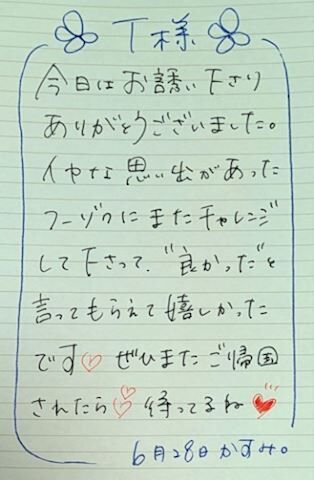 T様
今日はお誘い下さり
ありがとうございました。
イヤな思い出があった
フーゾクにまたチャレンジ
して下さって、"良かった"と
言ってもらえて嬉しかった
です♡ ぜひまたご帰国
されたら♡ 待ってるね♥
6月28日 かすみ。